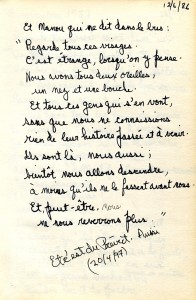 12/6/86
Et Manou qui me dit dans le bus :
"Regarde tous ces visages.
C'est étrange, lorsqu'on y pense.
Nous avons tous deux oreilles,
un nez et une bouche.
Et tous ces gens qui s'en vont,
sans que nous ne connaissions
rien de leur histoire passée et à venir.
Ils sont là, nous aussi ;
bientôt nous allons descendre,
à moins qu'ils ne le fassent avant nous.
Et, peut-être, nous
ne nous reverrons plus."
Et c'est du Aussi
(20/4/97)